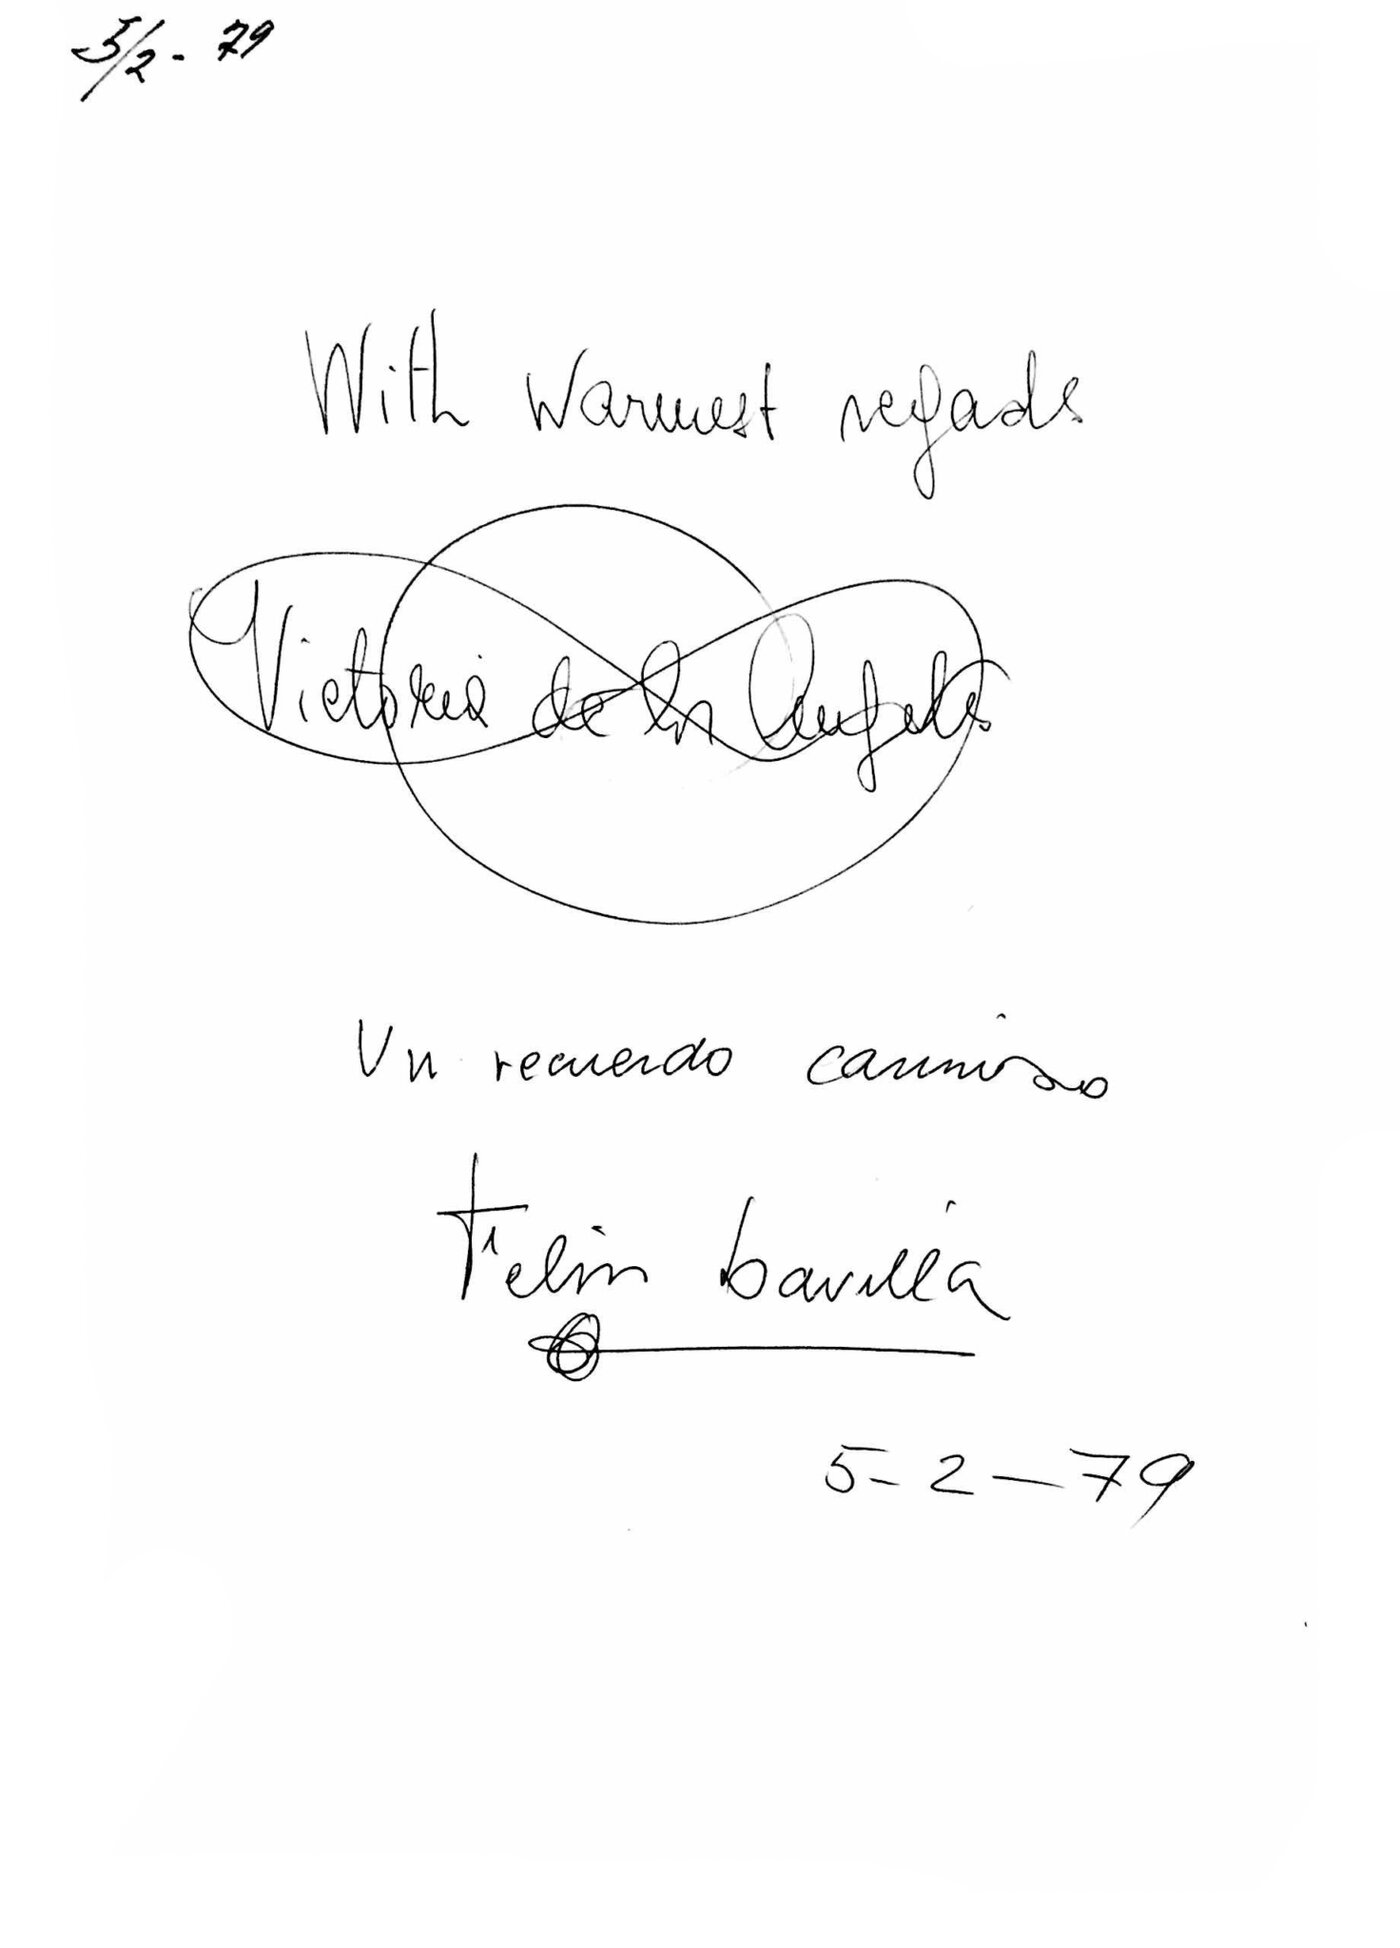 5/2 - 79
With warmest regads
Victoria de los Angeles
Un recuerdo cariñoso
Felix Lavilla
5-2-79